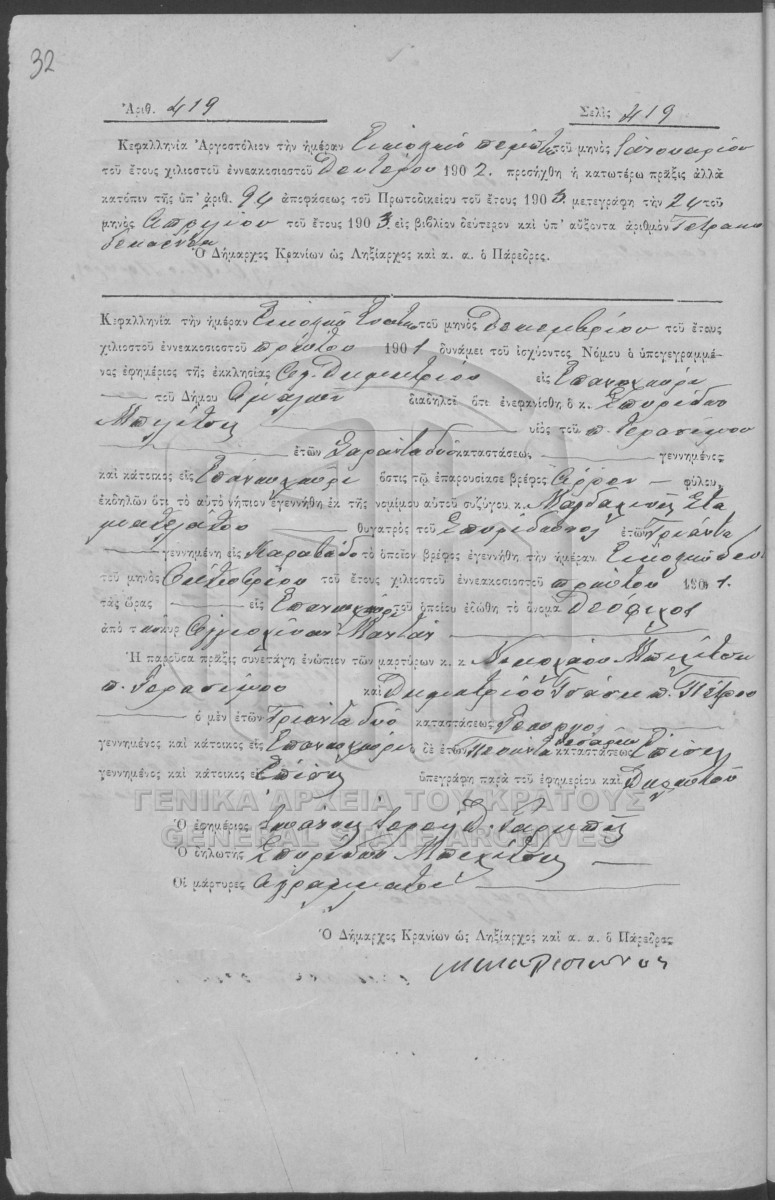 32
Ἀριθ. 419 Σελὶς 419
Κεφαλληνία Ἀργοστόλιον τὴν ἡμέραν Εἰκοστὴν πέμπτην τοῦ μηνὸς Ἰανουαρίου
τοῦ ἔτους χιλιοστοῦ ἐννεακοσιοστοῦ Δευτέρου 1902. προσήχθη ἡ κατωτέρω πρᾶξις ἀλλὰ
κατόπιν τῆς ὑπ' ἀριθ. 94 ἀποφάσεως τοῦ Πρωτοδικείου τοῦ ἔτους 1903 μετεγράφη τὴν 24 τοῦ
μηνὸς Ἀπριλίου τοῦ ἔτους 1903 εἰς βιβλίον δεύτερον καὶ ὑπ' αὔξοντα ἀριθμὸν Τετρακόσια
δεκαεννέα
Ὁ Δήμαρχος Κρανίων ὡς Ληξίαρχος καὶ α. α. ὁ Πάρεδρες.
Κεφαλληνία τὴν ἡμέραν Εἰκοστὴν τοῦ μηνὸς Δεκεμβρίου τοῦ ἔτους
χιλιοστοῦ ἐννεακοσιοστοῦ πρώτου 1901 δυνάμει τοῦ ἰσχύοντος Νόμου ὁ ὑπογεγραμμέ-
νος ἐφημέριος τῆς ἐκκλησίας Ἁγ. Δημητρίου εἰς Ἐπανωχώρι
τοῦ Δήμου Ὁμαλῶν διαδηλοῖ ὅτι ἐνεφανίσθη ὁ κ. Σπυρίδων
Μπεκίτσης υἱὸς τοῦ π. Γερασίμου
ἐτῶν Σαράντα δύο καταστάσεως γεννημένος
καὶ κάτοικος εἰς Ἐπανωχώρι ὅστις τῷ ἐπαρουσίασε βρέφος Ἄρρεν φύλου,
ἐκδηλῶν ὅτι τὸ αὐτὸ νήπιον ἐγεννήθη ἐκ τῆς νομίμου αὐτοῦ συζύγου κ. Μαγδαληνῆς Στα
ματελάτου θυγατρὸς τοῦ Σπυρίδωνος ἐτῶν Τριάντα
γεννημένη εἰς Καραβάδο τὸ ὁποῖον βρέφος ἐγεννήθη τὴν ἡμέραν Εἰκοστὴν
τοῦ μηνὸς Ὀκτωβρίου τοῦ ἔτους χιλιοστοῦ ἐννεακοσιοστοῦ πρώτου 1901.
τὰς ὥρας εἰς Ἐπανωχώρι τοῦ ὁποίου ἐδώθη τὸ ὄνομα Θεόφιλος
ἀπὸ τ Ἀγγελικὴν
Ἡ παροῦσα πρᾶξις συνετάγη ἐνώπιον τῶν μαρτύρων κ. κ. Νικολάου Μπεκίτση
π. Γερασίμου καὶ Δημητρίου π. Πέτρου
ὁ μὲν ἐτῶν Τριάντα δύο καταστάσεως Γεωργοῦ
γεννημένος καὶ κάτοικος εἰς Ἐπανωχώρι δὲ ἐτῶν Πενῆντα τεσσάρων καταστάσεως Ἐπίσης
γεννημένος καὶ κάτοικος εἰς Ἐπίσης ὑπεγράφη παρὰ τοῦ ἐφημερίου καὶ Δηλωτοῦ
ΓΕΝΙΚΑ ΑΡΧΕΙΑ ΤΟΥ ΚΡΑΤΟΥΣ
Ὁ ἐφημέριος Ἰωάννης Ἱερεὺς
GENERAL STATE ARCHIVES
Ὁ δηλωτής Σπυρίδων Μπεκίτσης
Οἱ μάρτυρες Ἀγράμματοι
Ὁ Δήμαρχος Κρανίων ὡς Ληξίαρχος καὶ α. α. ὁ Πάρεδρες